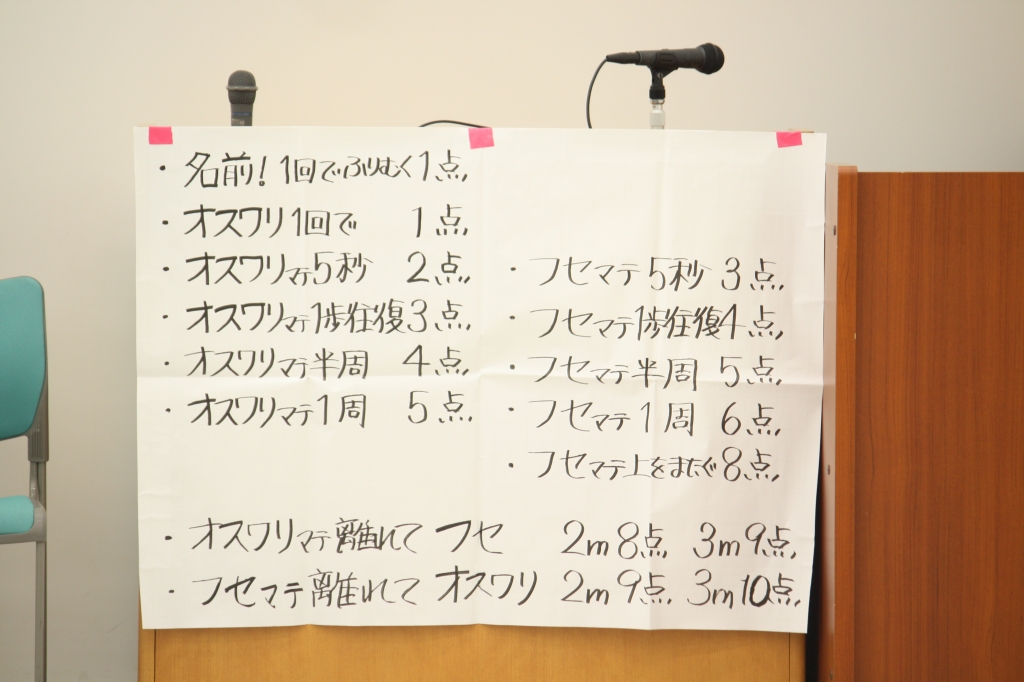 ・名前！1回でふりむく1点,
・オスワリ1回で 1点,
・オスワリマテ5秒 2点,
・オスワリマテ1歩往復3点,
・オスワリマテ半周 4点,
・オスワリマテ1周 5点,
・フセマテ5秒 3点,
・フセマテ1歩往復4点,
・フセマテ半周 5点,
・フセマテ1周 6点,
・フセマテ上をまたぐ8点,
・オスワリマテ離れて フセ 2m8点, 3m9点,
・フセマテ離れて オスワリ 2m9点, 3m10点,